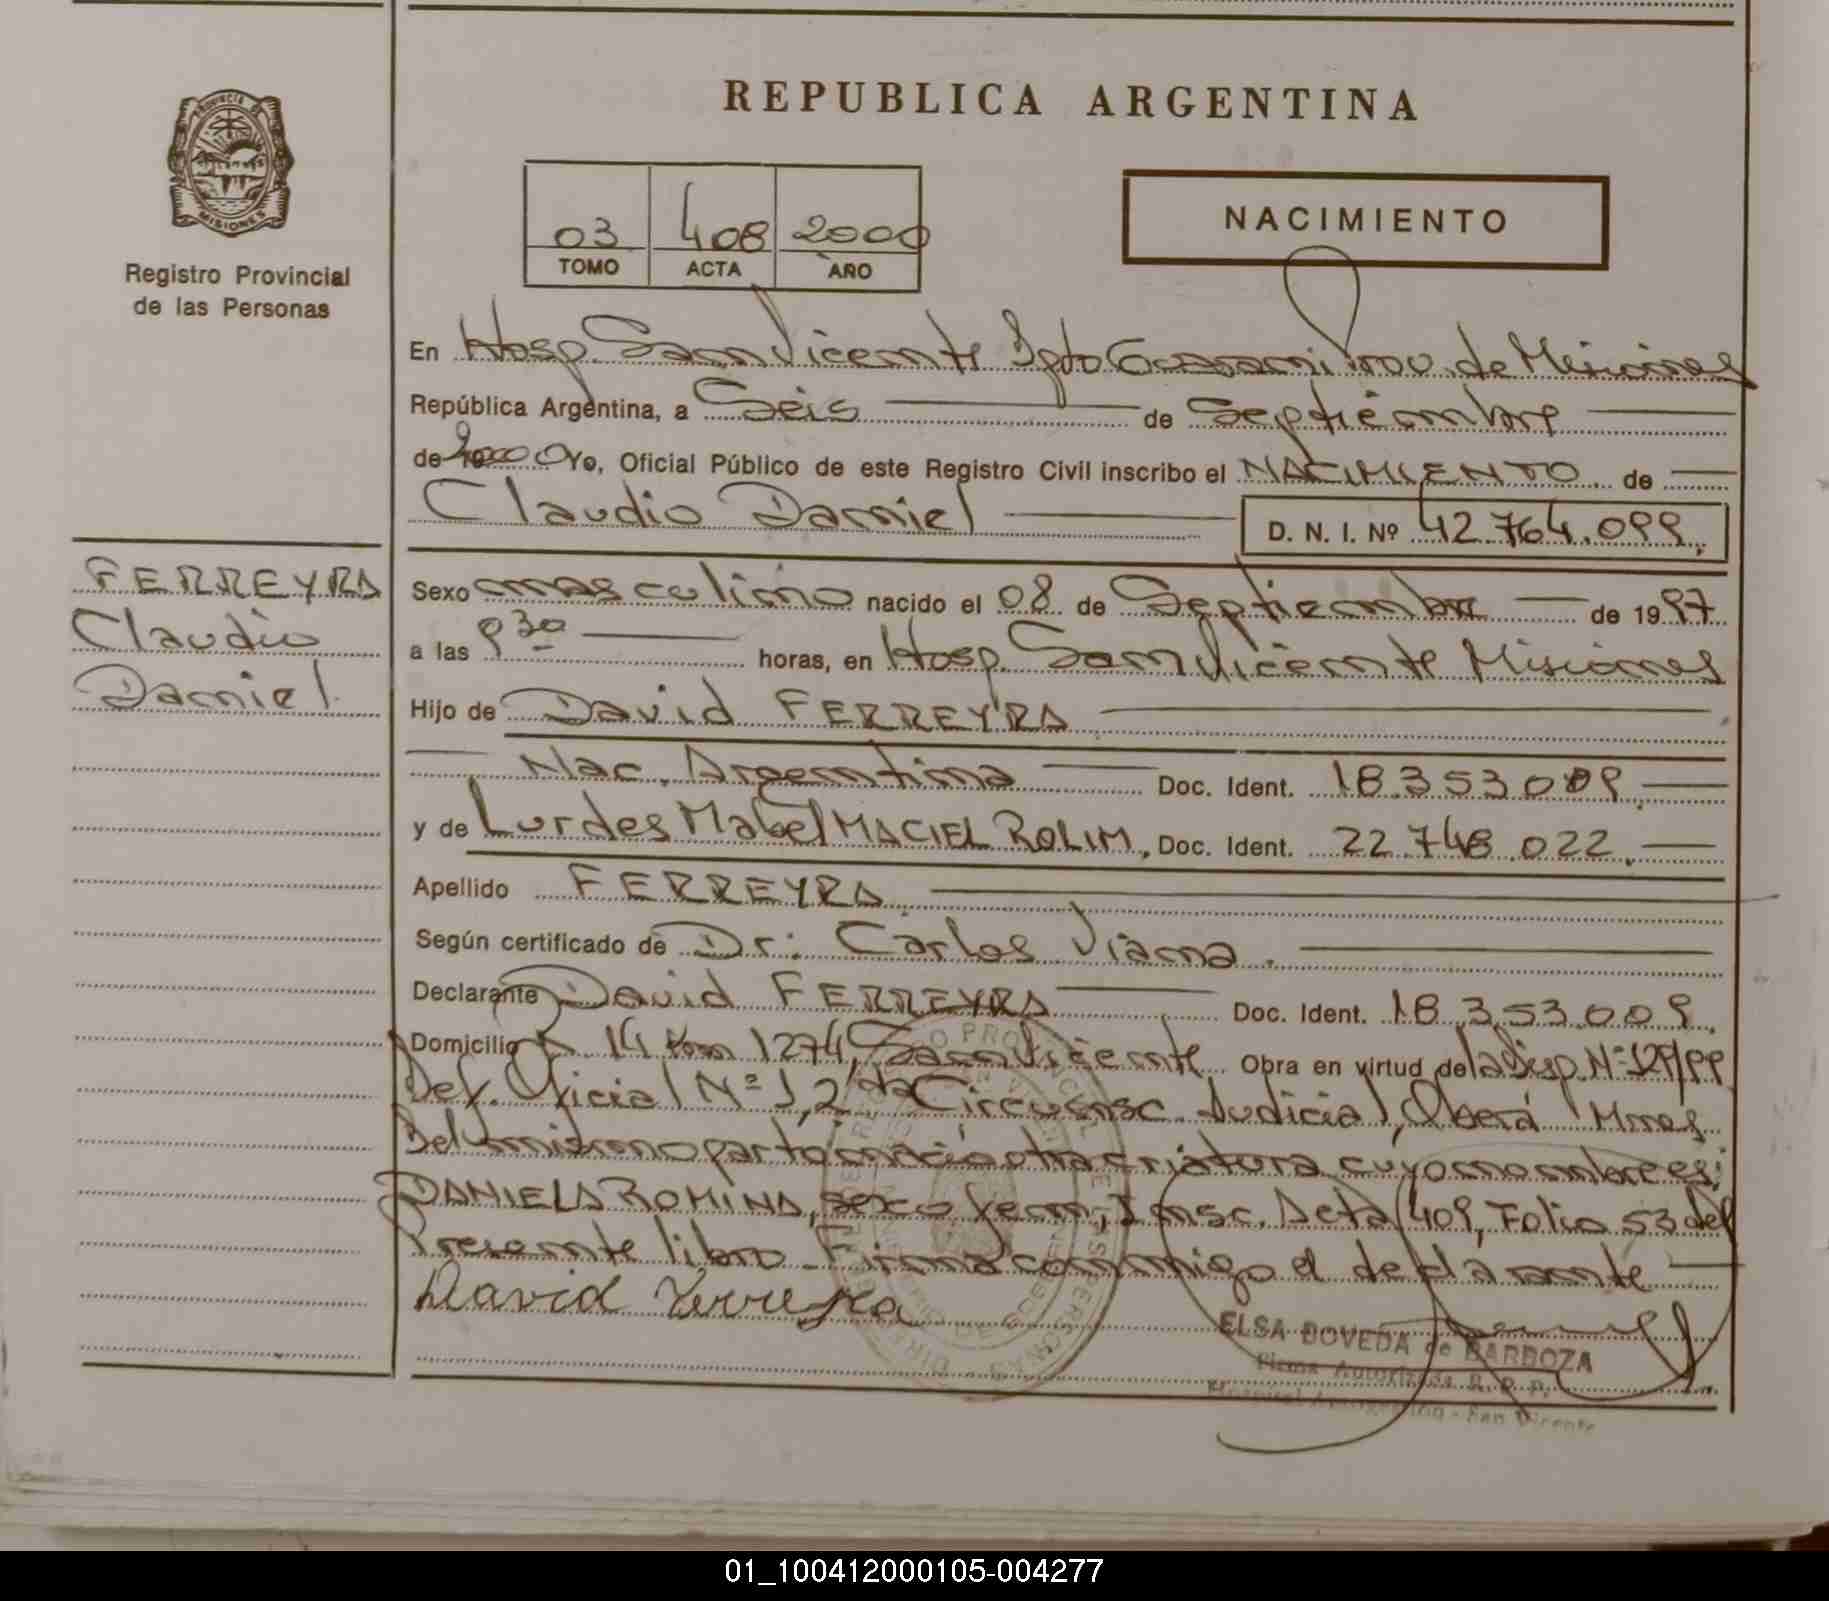 REPUBLICA ARGENTINA
PROVINCIA DE
MISIONES
Registro Provincial
de las Personas
03 408 2000
TOMO ACTA AÑO
NACIMIENTO
En Hosp. San Vicente Dpto Guarani Prov. de Misiones
República Argentina, a Seis de Septiembre
de 2000 Yo, Oficial Público de este Registro Civil inscribo el NACIMIENTO de
Claudio Daniel D. N. I. Nº 42.764.099.
FERREYRA
Claudio
Daniel.
Sexo masculino nacido el 08 de Septiembre de 1997
a las 9 30 horas, en Hosp. San Vicente Misiones
Hijo de David FERREYRA
Nac. Argentina Doc. Ident. 18.353.009.
y de Lurdes Mabel MACIEL ROLIM, Doc. Ident. 22.748.022.
Apellido FERREYRA
Según certificado de Dr: Carlos Viana.
Declarante David FERREYRA Doc. Ident. 18.353.009.
Domicilio R. 14 Km 1274, San Vicente Obra en virtud de la Disp. Nº 129/99
Def. Oficial Nº 1, 2da Circunsc. Judicial, Oberá Mnes.
Del mismo parto nació otra criatura cuyo nombre es:
DANIELA ROMINA, sexo fem; Insc. Acta 409, Folio 53 del
Presente libro. Firma conmigo el declarante
David Ferreyra
ELSA DOVEDA de BARBOZA
Firma Autorizada R. P. P.
Hospital Autogestión - San Vicente
01_100412000105-004277